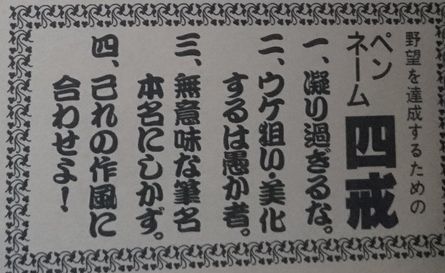 野望を達成するための
ペンネーム四戒
一、凝り過ぎるな。
二、ウケ狙い・美化
するは愚か者。
三、無意味な筆名
本名にしかず。
四、己れの作風に
合わせよ！